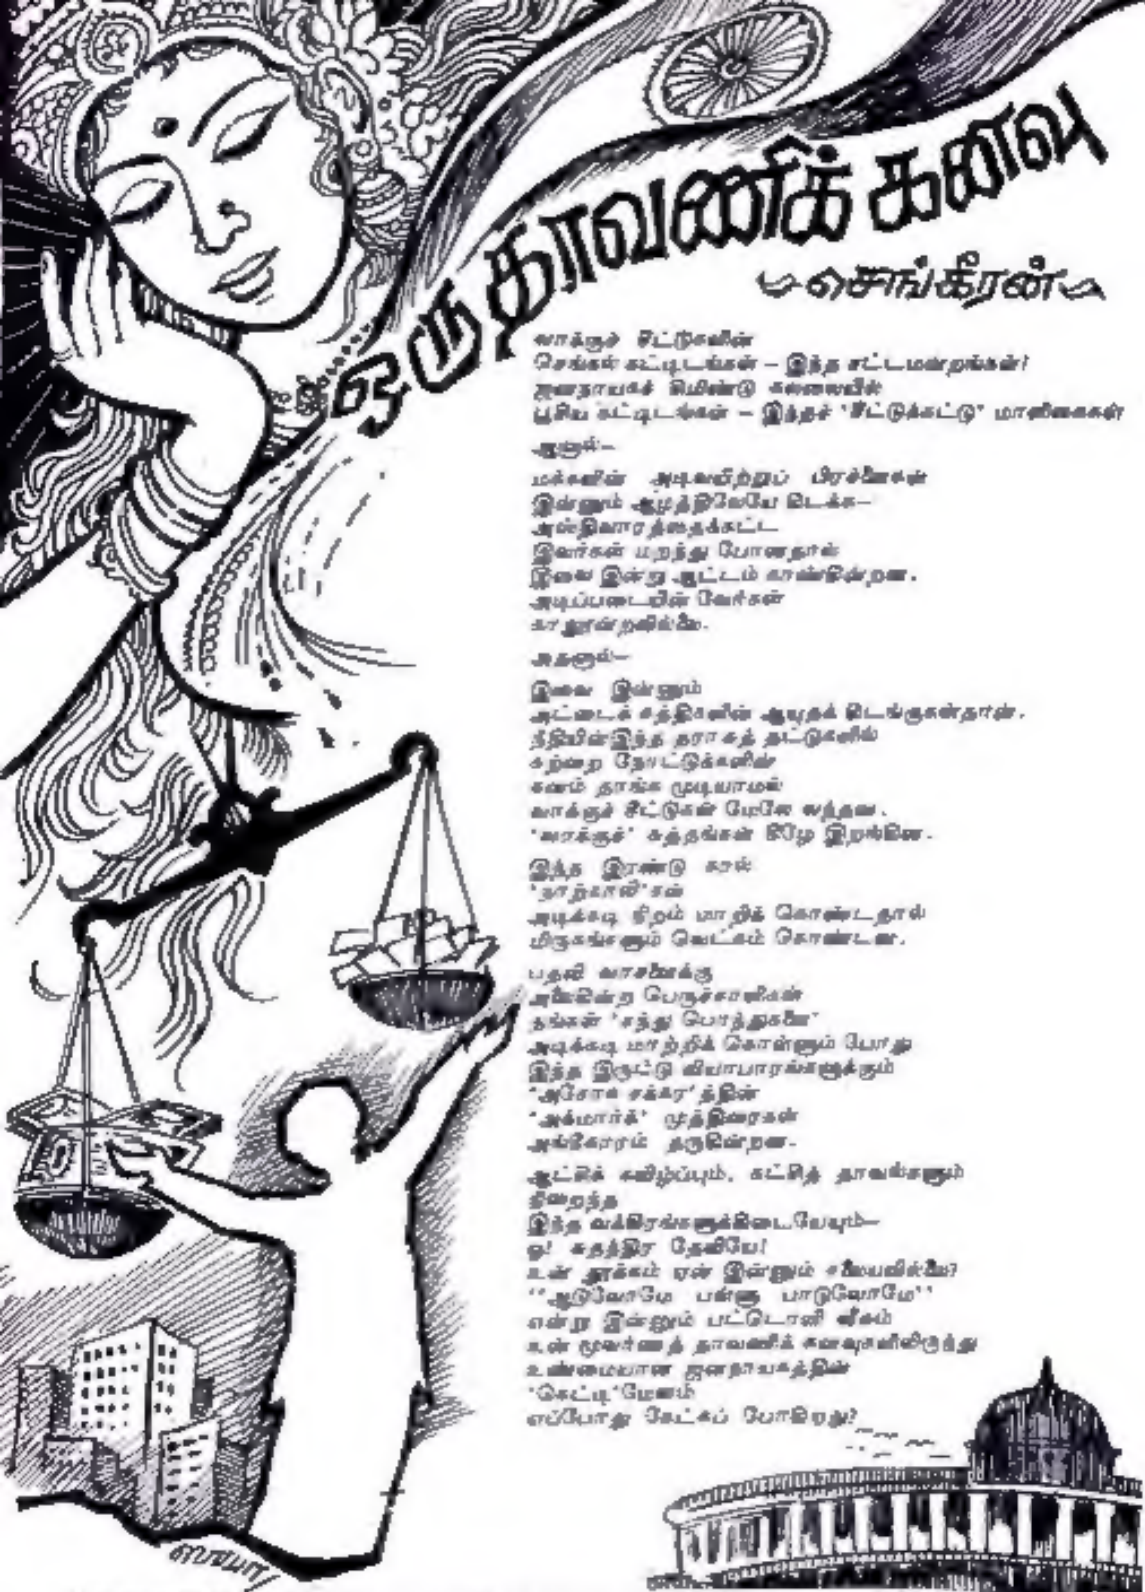 ஒரு தாவணிக் கனவு
செங்கீரன்
வாக்குச் சீட்டுகளின்
செங்கல் கட்டிடங்கள் – இந்த சட்டமன்றங்கள்!
ஜனநாயகச் சிமெண்டு கலவையில்
பூசிய கட்டிடங்கள் – இந்தச் 'சீட்டுக்கட்டு' மாளிகைகள்
ஆனால்–
மக்களின் அடிவயிற்றுப் பிரச்னைகள்
இன்னும் ஆழத்திலேயே கிடக்க–
அஸ்திவாரத்தைக்கட்ட
இவர்கள் மறந்து போனதால்
இவை இன்று ஆட்டம் காண்கின்றன.
அடிப்படையின் வேர்கள்
காலூன்றவில்லை.
அதனால்–
இவை இன்னும்
அட்டைக் கத்திகளின் ஆயுதக் கிடங்குகள்தான்.
நீதியின் இந்த தராசுத் தட்டுகளில்
கற்றை நோட்டுக்களின்
கனம் தாங்க முடியாமல்
வாக்குச் சீட்டுகள் மேலே வந்தன.
'வாக்குச்' சுத்தங்கள் கீழே இறங்கின.
இந்த இரண்டு கால்
'நாற்காலி'கள்
அடிக்கடி நிறம் மாறிக் கொண்டதால்
மிருகங்களும் வெட்கம் கொண்டன.
பதவி வாசனைக்கு
அலைகின்ற பெருச்சாளிகள்
தங்கள் 'சந்து பொந்துகளை'
அடிக்கடி மாற்றிக் கொள்ளும் போது
இந்த இருட்டு வியாபாரங்களுக்கும்
'அசோக சக்கர'த்தின்
'அக்மார்க்' முத்திரைகள்
அங்கீகாரம் தருகின்றன.
ஆட்சிக் கவிழ்ப்பும், கட்சித் தாவல்களும்
நிறைந்த
இந்த வக்கிரங்களுக்கிடையேயும்–
ஓ! சுதந்திர தேவியே!
உன் தூக்கம் ஏன் இன்னும் கலையவில்லை?
"ஆடுவோமே பள்ளு பாடுவோமே"
என்று இன்னும் பட்டொளி வீசும்
உன் மூவர்ணத் தாவணிக் கனவுகளிலிருந்து
உண்மையான ஜனநாயகத்தின்
'கெட்டி'மேளம்
எப்போது கேட்கப் போகிறது?